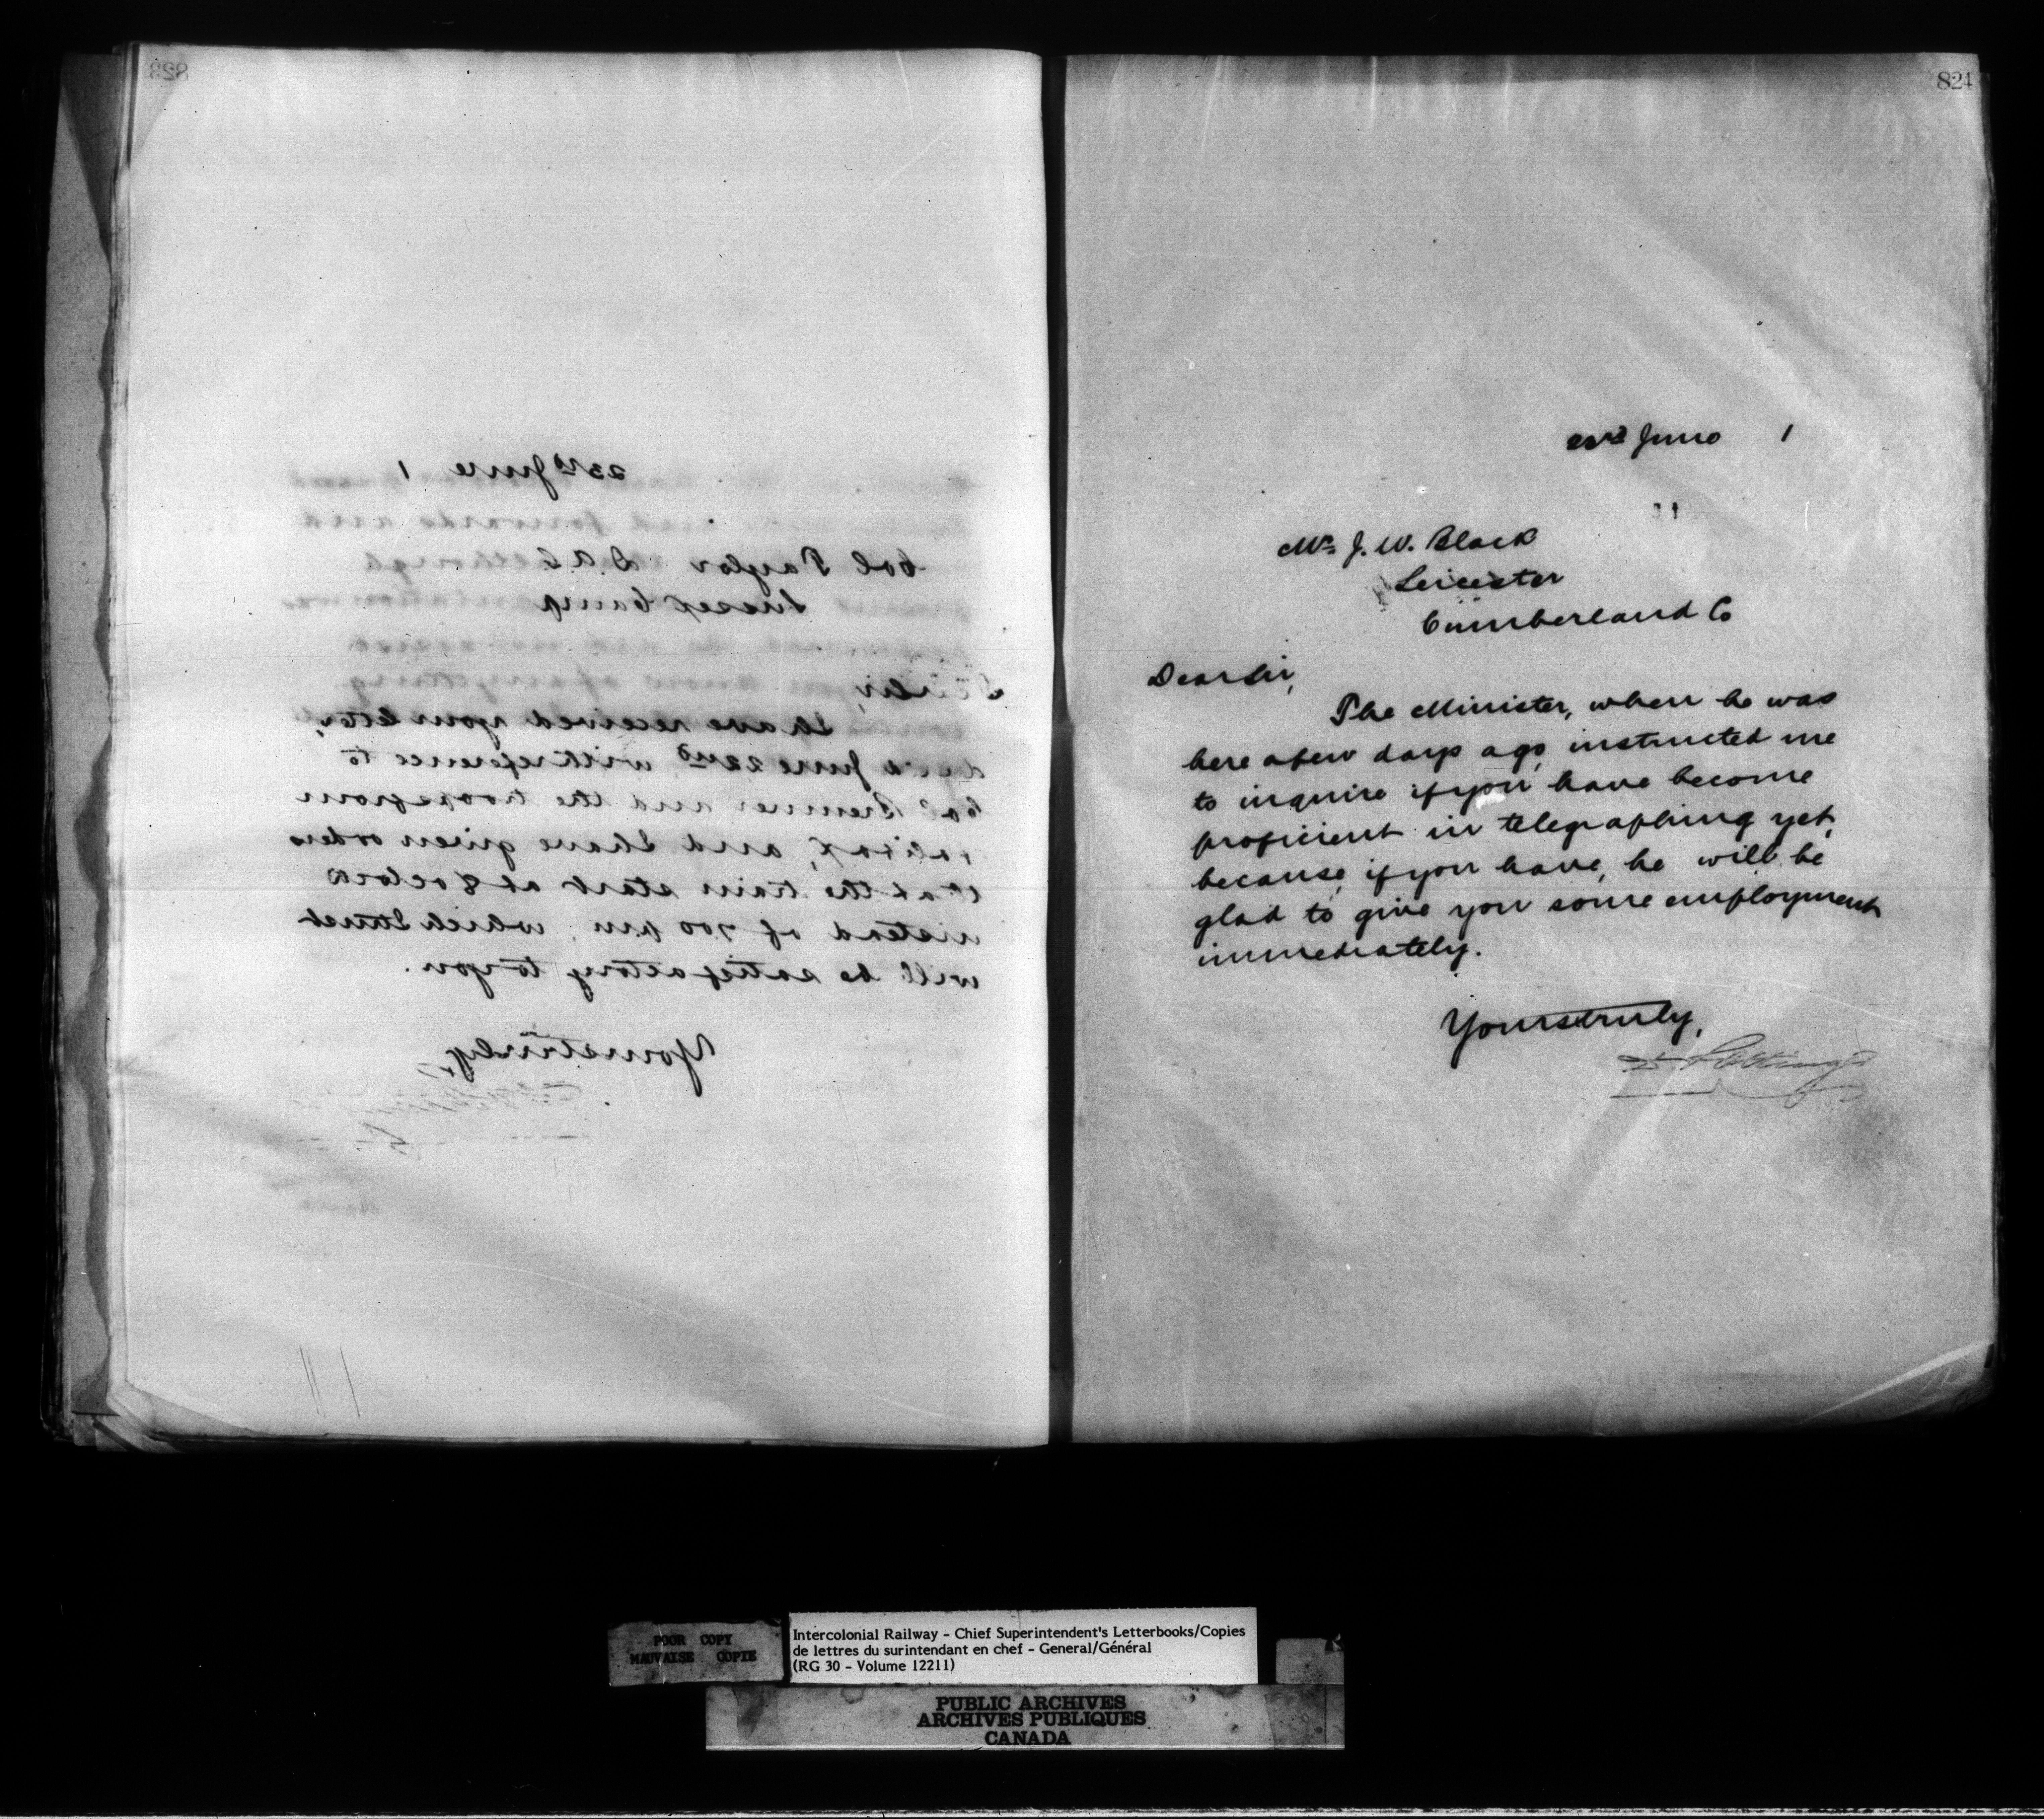 823
23rd June 1
Col Taylor D.A.G
Sussex Camp
Sir,
I have received your letter,
June 22nd, with reference to
Col Bremner and the troops from
and I have given orders
that the train start at 8 oclock
instead of 700 pm, which I trust
will be satisfactory to you.
Yours truly,
824
June 1
Mr J. W. Black
Leicester
Cumberland Co
Dear Sir,
The Minister, when he was
here a few days ago, instructed me
to inquire if you have become
proficient in telegraphing yet,
because, if you have, he will be
glad to give you some employment
immediately.
Yours truly,
D Pottinger
POOR COPY
MAUVAISE COPIE
Intercolonial Railway - Chief Superintendent's Letterbooks/Copies
de lettres du surintendant en chef - General/Général
(RG 30 - Volume 12211)
PUBLIC ARCHIVES
ARCHIVES PUBLIQUES
CANADA